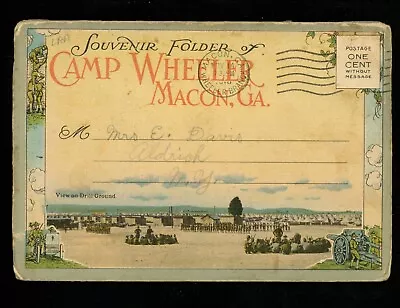 Souvenir Folder of
CAMP WHEELER
MACON, GA.
MACON, GA.
POSTAGE
ONE
CENT
WITHOUT
MESSAGE
M Mrs E. Davis
Aldrich
N.Y.
View on Drill Ground